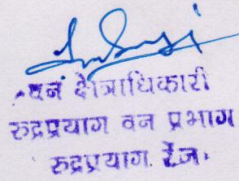 वन क्षेत्राधिकारी
रुद्रप्रयाग वन प्रभाग
रुद्रप्रयाग रेंज.